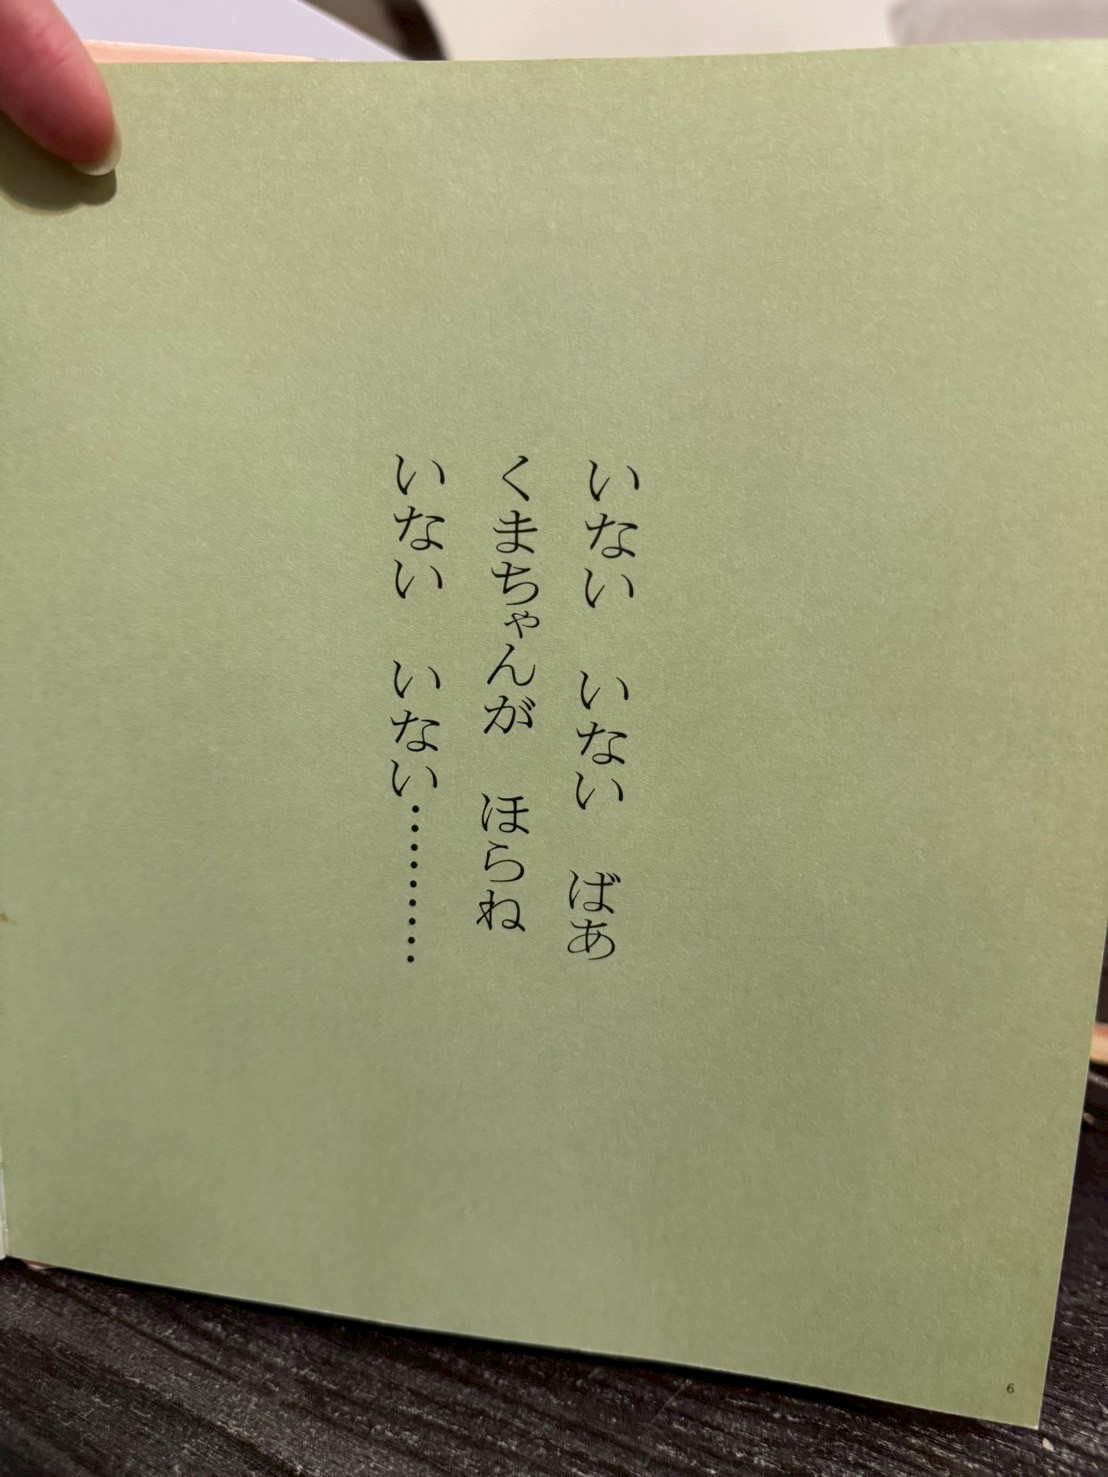 いない　いない　ばあ
くまちゃんが　ほらね
いない　いない………
6